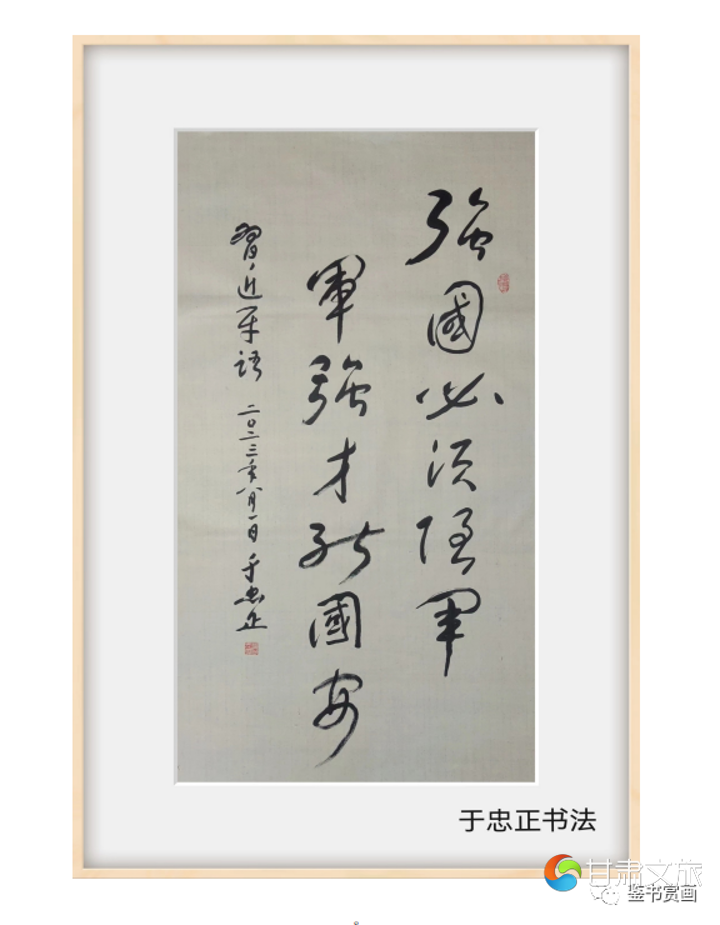 強國必須強軍
軍強才能國安
習近平語 二〇二三年八月一日 于忠正
于忠正书法
甘肃文旅
鉴书赏画